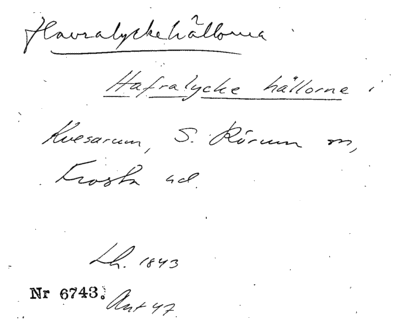 Havralyckehällorna
Hafralycke hällorne i
Kvesarum, S. Rörum sn,
Frosta hd.
Lh. 1843
Nr 6743.
Ant 47